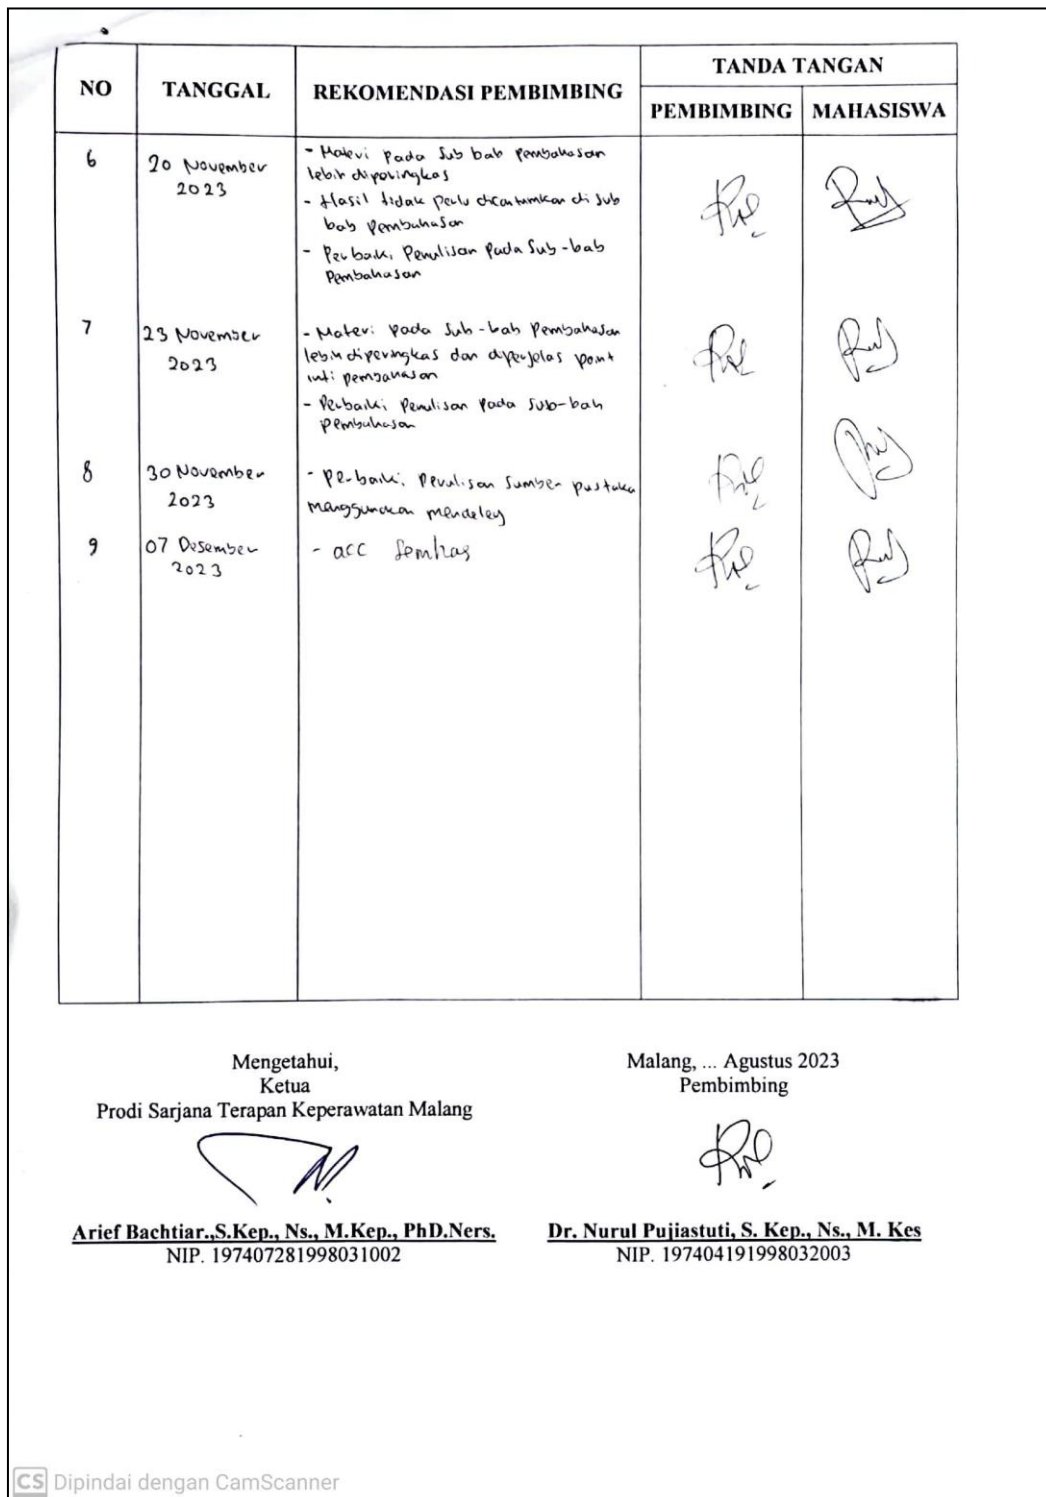 NO TANGGAL REKOMENDASI PEMBIMBING TANDA TANGAN
PEMBIMBING MAHASISWA
6 20 November 2023
- Materi pada Sub bab pembahasan
lebih diperingkas
- Hasil tidak perlu dicantumkan di sub
bab pembahasan
- Perbaiki Penulisan pada Sub-bab
Pembahasan
7 23 November 2023
- Materi pada Sub-bab Pembahasan
lebih diperingkas dan diperjelas point
inti pembahasan
- Perbaiki Penulisan pada Sub-bab
pembahasan
8 30 November 2023
- Perbaiki Penulisan Sumber pustaka
menggunakan mendeley
9 07 Desember 2023
- acc Semhas
Mengetahui,
Ketua
Prodi Sarjana Terapan Keperawatan Malang
Arief Bachtiar.,S.Kep., Ns., M.Kep., PhD.Ners.
NIP. 197407281998031002
Malang, ... Agustus 2023
Pembimbing
Dr. Nurul Pujiastuti, S. Kep., Ns., M. Kes
NIP. 197404191998032003
CS Dipindai dengan CamScanner